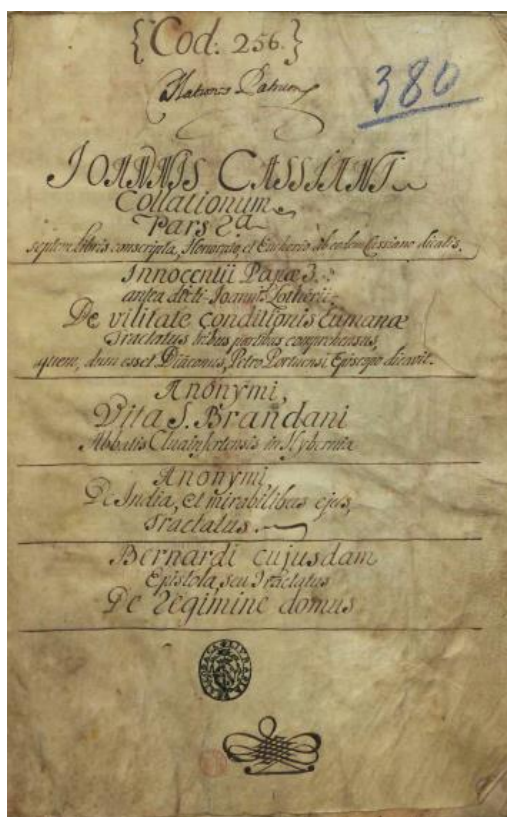 {Cod: 256.}
380
JOANNIS CASSIANI
Collationum
Pars 2a
septem libris conscripta, Honorato, et Eucherio ab eodem Cassiano dicatis.
Innocentii Papæ 3.
antea dicti Joannis Lotherii
De vilitate conditionis humanæ
Tractatus tribus partibus comprehensus,
quem, dum esset Diaconus, Petro Portuensi Episcopo dicavit.
Anonymi,
Vita S. Brandani
Abbatis Cluainfertensis in Hybernia
Anonymi,
De India, et mirabilibus ejus,
Tractatus.
Bernardi cujusdam
Epistola, seu Tractatus
De regimine domus